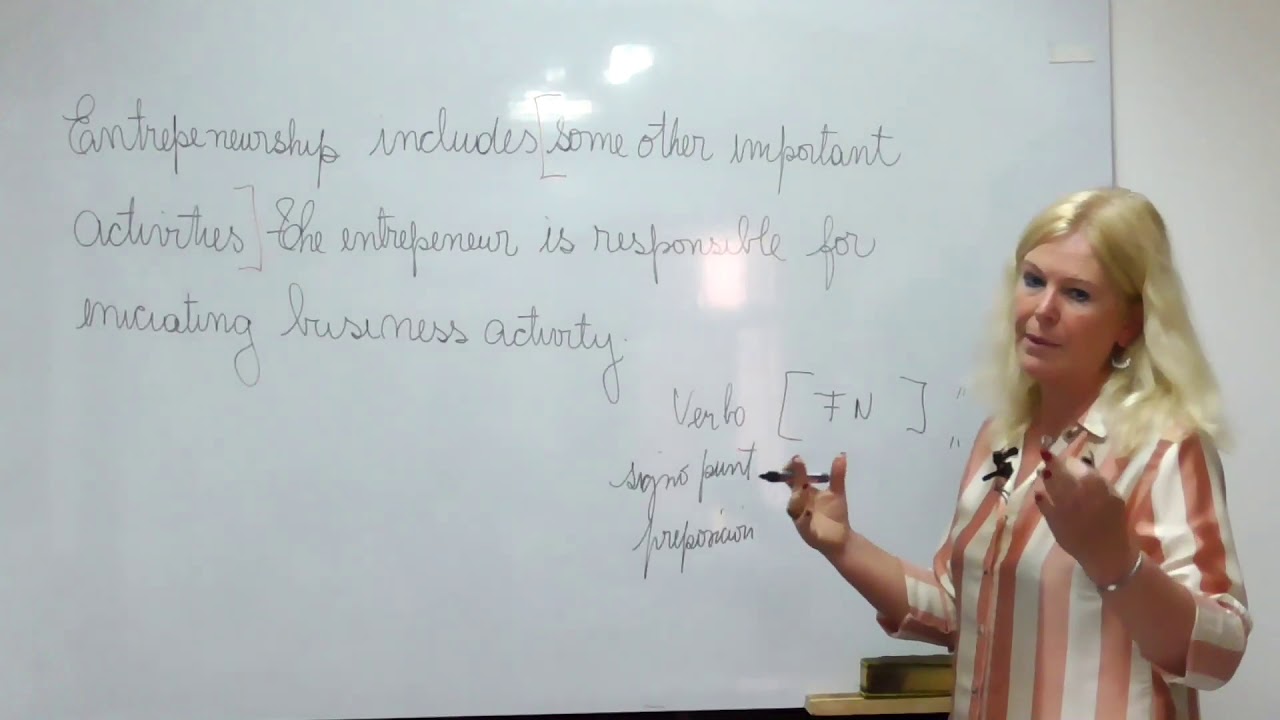 Entrepeneurship includes [some other important
activities] The entrepeneur is responsible for
iniciating business activity.
Verbo [ FN ] "
signo punt "
preposicion